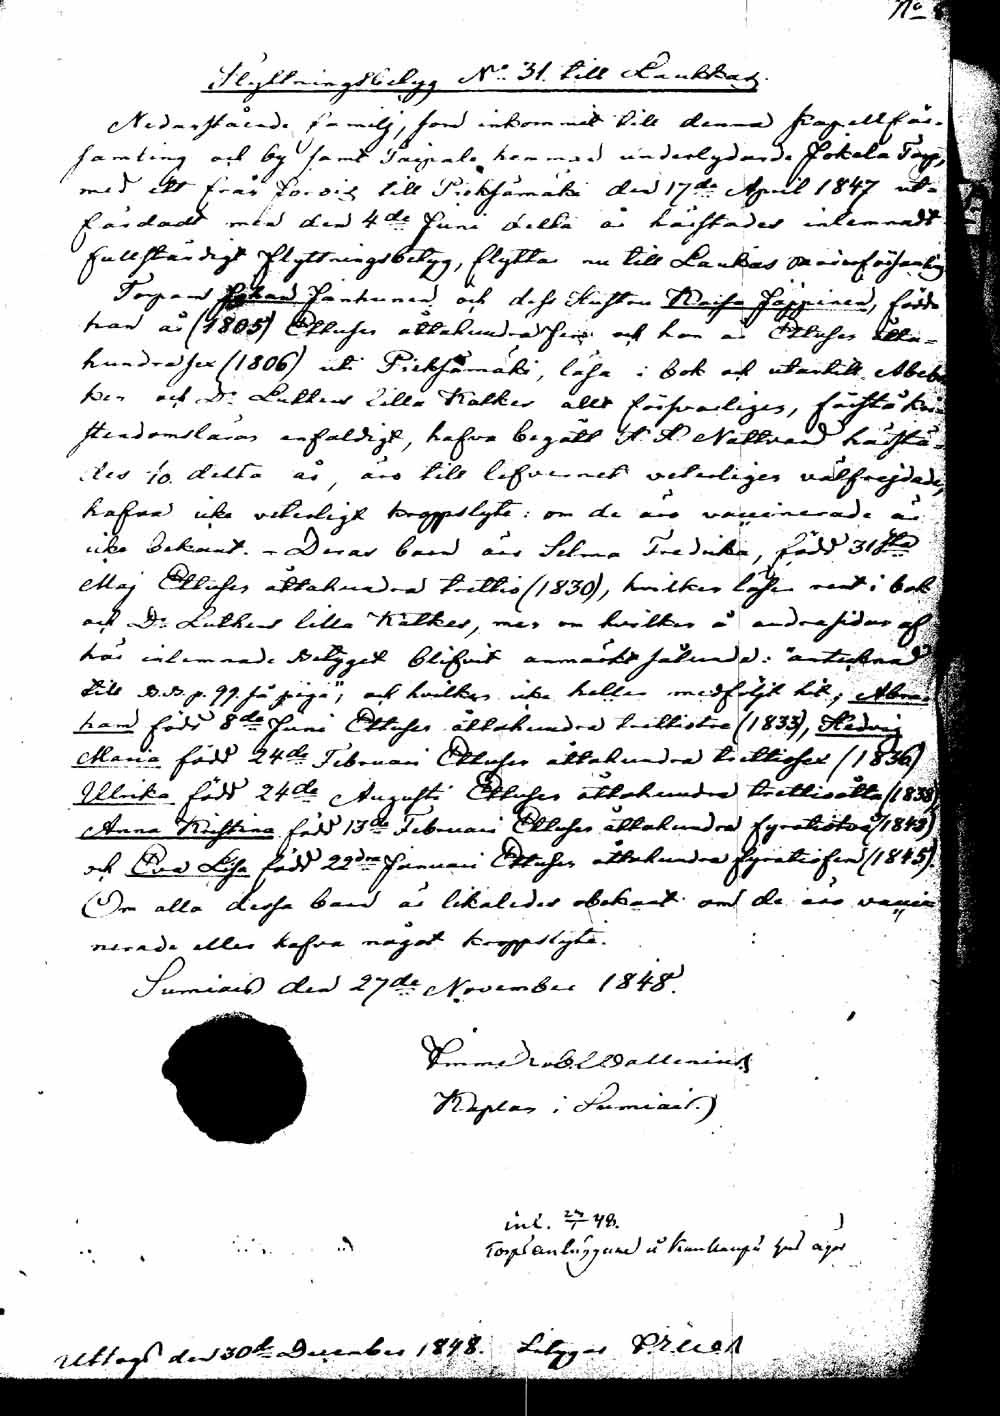 No
Flyttningsbetyg No 31. till Laukkas.
Nedanstående familj, som inkommit till denna Kapellför-
samling och by samt Taipale hemman underlydande Jokela Torp,
med ett från till Pieksämäki den 17de April 1847 ut-
färdadt men den 4de Juni detta år härstädes inlemnadt
fullständigt flyttningsbetyg, flytta nu till Laukas
Torparn Johan Janhunen och dess Hustru Kaisa Jäppinen, född
han år (1805) Ettusen åttahundra fem och hon år Ettusen åtta-
hundrasex (1806) uti Pieksämäki, läsa i bok och utantill Abcbo-
ken och Dr Luthers lilla Katkes allt försvarligen, förstå kri-
stendomsläran enfaldigt, hafva begått H. H. Nattvard härstä-
des /10. detta år, äro till lefvernet veterligen välfrejdade,
hafva icke veterligt kroppslyte: om de äro vaccinerade är
icke bekant. – Deras barn äro Selma Fredrika, född 31sta
Maj Ettusen åttahundra trettio (1830), hvilken läser rent i bok
och Dr Luthers lilla Katkes, men om hvilken å andra sidan af
här inlemnade Betyget blifvit anmärkt sålunda: "antecknad
till B.B. p. 99. så piga", och hvilken icke heller medföljt hit; Abra-
ham född 8de Juni Ettusen åttahundra trettiotre (1833), Hedvig
Maria född 24de Februari Ettusen åttahundra trettiosex (1836)
Ulrika född 24de Augusti Ettusen åttahundra trettioåtta (1838)
Anna Kristina född 13de Februari Ettusen åttahundra fyratiotvå
och Eva Lisa född 22dra Januari Ettusen åttahundra fyratiofem (1845).
Om alla dessa barn är likaledes obekant om de äro vacci-
nerade eller hafva något kroppslyte.
Sumiais den 27de November 1848.
Wallenius
Kaplan i Sumiais.
inl. 48.
Torpanläggare å
Uttags den 30de December 1848.